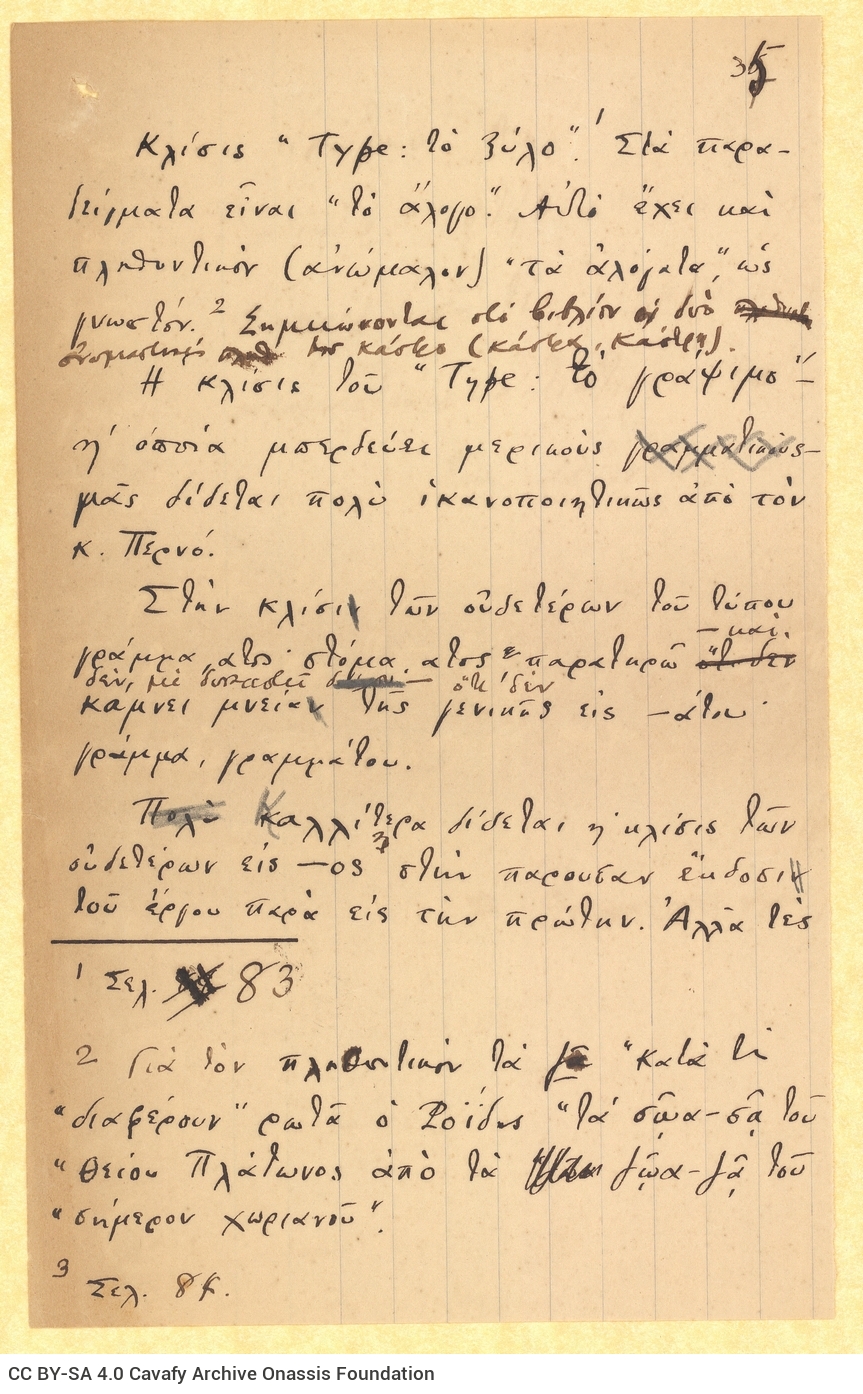 35
Κλίσις "Type: τὸ ξύλο".¹ Στὰ παρα-
δείγματα εἶναι "τὸ ἄλογο". Αὐτὸ ἔχει καὶ
πληθυντικὸν (ἀνώμαλον) "τὰ ἀλόγατα", ὡς
γνωστόν.² Σημειώνονται στὸ βιβλίον οἱ δυὸ
ὀνομαστικὲς τοῦ κάστρο (κάστρα, κάστρη).
Η κλίσις τοῦ "Type: τὸ γράψιμο"—
ἡ ὁποία μπερδεύει μερικοὺς γραμματικούς—
μᾶς δίδεται πολὺ ἱκανοποιητικῶς ἀπὸ τὸν
κ. Περνό.
Στὴν κλίσι τῶν οὐδετέρων τοῦ τύπου
—καὶ
γράμμα, ατος· στόμα, ατος παρατηρῶ ὅτι δὲν
δὲν, μὲ δυσαρεστεῖ — ὅτι δὲν
κάμνει μνεία τῆς γενικῆς εἰς —άτου·
γράμμα, γραμμάτου.
Πολὺ Καλλίτερα δίδεται ἡ κλίσις τῶν
οὐδετέρων εἰς —ος³ στὴν παροῦσαν ἔκδοσι
τοῦ ἔργου παρὰ εἰς τὴν πρώτην. Ἀλλὰ τὲς
¹ Σελ. 83
² Γιὰ τὸν πληθυντικὸν τὰ "Κατὰ τί
"διαφέρουν" ρωτᾶ ὁ Ροΐδης "τὰ σῶα-σᾶ τοῦ
"θείου Πλάτωνος ἀπὸ τὰ ζῶα-ζᾶ τοῦ
"σήμερον χωριανοῦ".
³ Σελ. 84.
CC BY-SA 4.0 Cavafy Archive Onassis Foundation